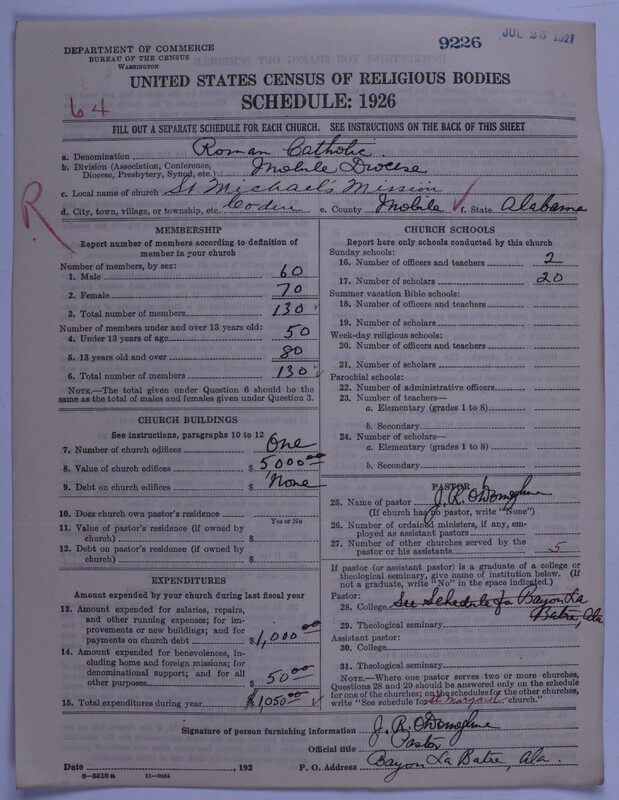 DEPARTMENT OF COMMERCE
BUREAU OF THE CENSUS
WASHINGTON
9226
JUL 25 1927
UNITED STATES CENSUS OF RELIGIOUS BODIES
SCHEDULE: 1926
64
FILL OUT A SEPARATE SCHEDULE FOR EACH CHURCH. SEE INSTRUCTIONS ON THE BACK OF THIS SHEET
a. Denomination Roman Catholic
b. Division (Association, Conference, Diocese, Presbytery, Synod, etc.) Mobile Diocese
c. Local name of church St Michael's Mission
R
d. City, town, village, or township, etc. Coden e. County Mobile f. State Alabama
MEMBERSHIP
Report number of members according to definition of
member in your church
Number of members, by sex:
1. Male 60
2. Female 70
3. Total number of members 130
Number of members under and over 13 years old:
4. Under 13 years of age 50
5. 13 years old and over 80
6. Total number of members 130
NOTE.—The total given under Question 6 should be
same as the total of males and females given under Question 3.
CHURCH BUILDINGS
See instructions, paragraphs 10 to 12
7. Number of church edifices One
8. Value of church edifices $ 5000 00
9. Debt on church edifices $ None
10. Does church own pastor's residence
Yes or No
11. Value of pastor's residence (if owned by
church) $
12. Debt on pastor's residence (if owned by
church) $
EXPENDITURES
Amount expended by your church during last fiscal year
13. Amount expended for salaries, repairs,
and other running expenses; for im-
provements or new buildings; and for
payments on church debt $ 1,000 00
14. Amount expended for benevolences, in-
cluding home and foreign missions; for
denominational support; and for all
other purposes $ 50 00
15. Total expenditures during year $ 1,050 00
CHURCH SCHOOLS
Report here only schools conducted by this church
Sunday schools:
16. Number of officers and teachers 2
17. Number of scholars 20
Summer vacation Bible schools:
18. Number of officers and teachers
19. Number of scholars
Week-day religious schools:
20. Number of officers and teachers
21. Number of scholars
Parochial schools:
22. Number of administrative officers
23. Number of teachers—
a. Elementary (grades 1 to 8)
b. Secondary
24. Number of scholars—
a. Elementary (grades 1 to 8)
b. Secondary
PASTOR
25. Name of pastor J. R. O'Donoghue
(If church has no pastor, write "None")
26. Number of ordained ministers, if any, em-
ployed as assistant pastors
27. Number of other churches served by the
pastor or his assistants 5
If pastor (or assistant pastor) is a graduate of a college or
theological seminary, give name of institution below. (If
not a graduate, write "No" in the space indicated.)
Pastor:
28. College See Schedule for Bayou La
Batre, Ala
29. Theological seminary
Assistant pastor:
30. College
31. Theological seminary
NOTE.—Where one pastor serves two or more churches,
Questions 28 and 29 should be answered only on the schedule
for one of the churches; on the schedules for the other churches,
write "See schedule for St Margaret church."
Signature of person furnishing information J. R. O'Donoghue
Official title Pastor
Date , 192 P. O. Address Bayou La Batre, Ala.
8—5518 a 11—9034